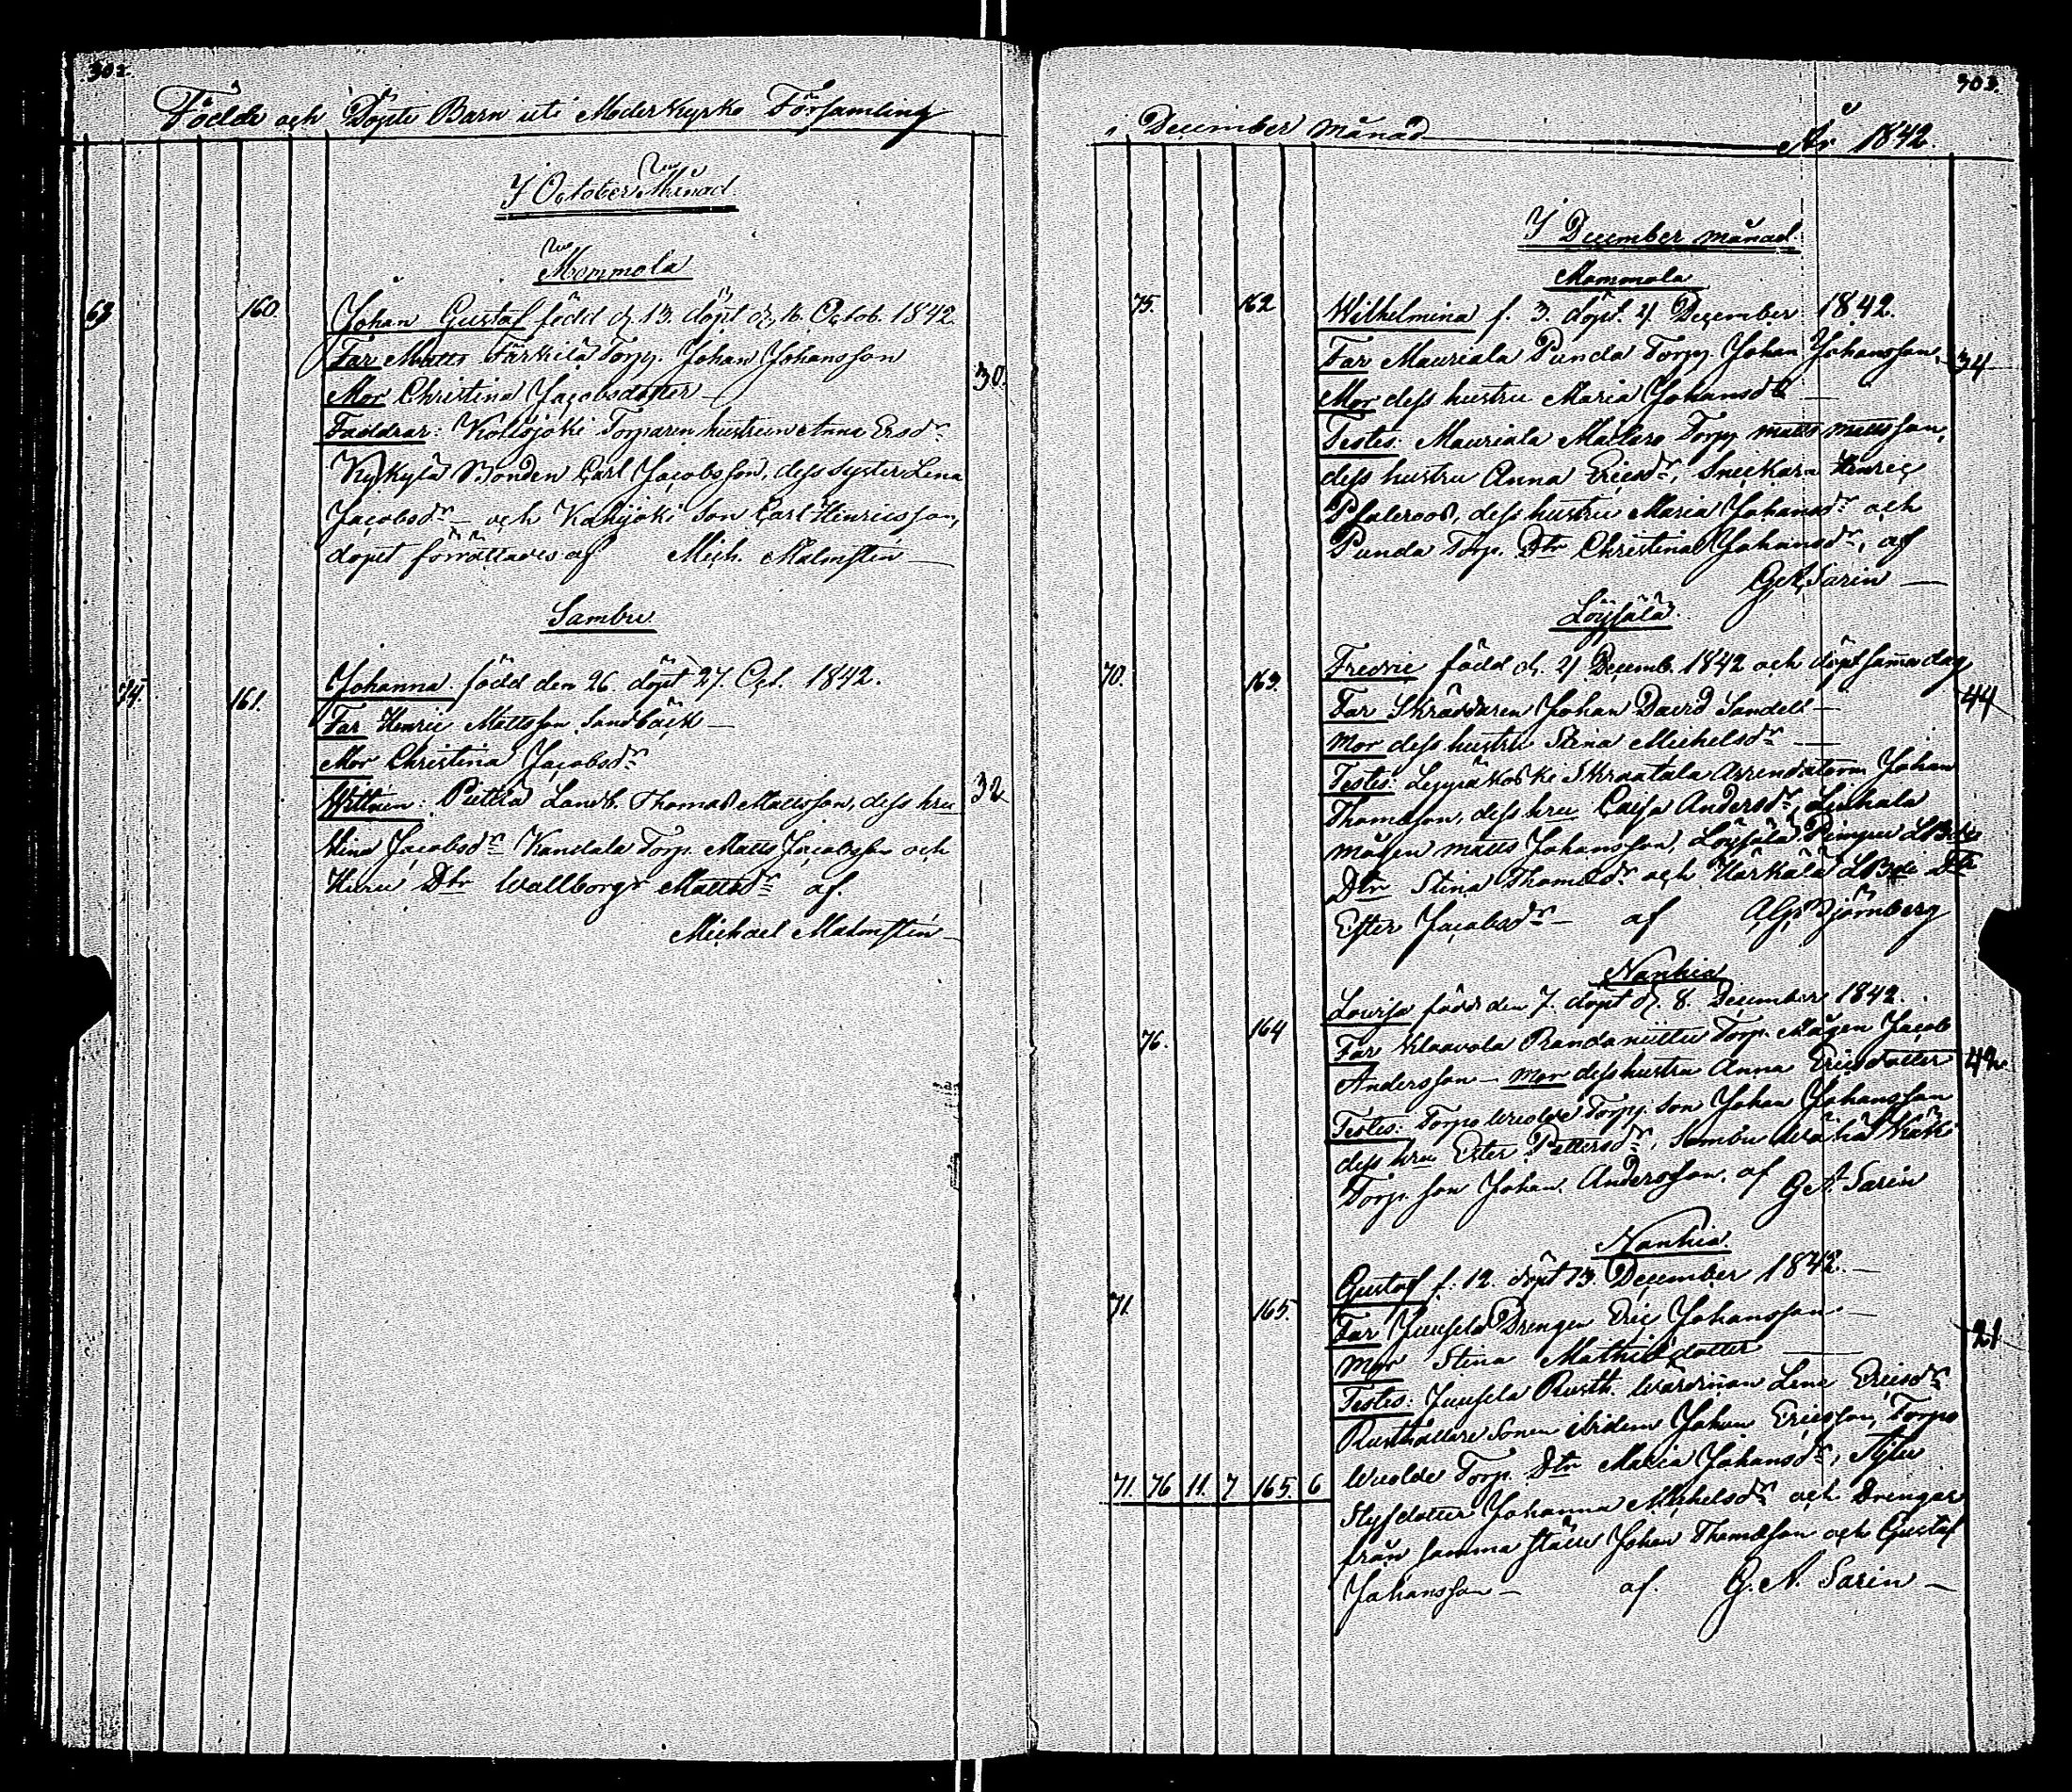 302.
Födde och Döpte Barn uti Moderkyrko Församling
I October Månad
Mommola
69 160. Johan Gustaf född d. 13. döpt d. 16. Octob. 1842.
Far Matts Färkilä Torp. Johan Johansson
Mor Christina Jacobsdotter — 30.
Faddrar: Koisjoki Torparen hustrun Anna Ersdr
Kykylä Bonden Carl Jacobsson, dess syster Lena
Jacobsdr — och Kahijoki Son Carl Hinricsson,
döpet förrättades af Mich. Malmstén —
Sambu
74. 161. Johanna född den 26 döpt 27. Oct. 1842.
Far Henric Mattsson Sandbäck —
Mor Christina Jacobsdr
Wittnen: Puttla Landb. Thomas Mattsson, dess hru 32
Stina Jacobsdr Kandala Torp. Matts Jacobsson och
Dtr Wallborg Mattsdr af.
Michael Malmstén —
303.
i December månad År 1842.
I December månad.
Mommola
75. 162 Wilhelmina f. 3. döpt. 4 December 1842.
Far Mauriala Punda Torp. Johan Johansson, 34
Mor dess hustru Maria Johansdr —
Testes: Mauriala Torp. Matts Mattsson,
dess hustru Anna Ericsdr, Snickarn Henric
dess hustru Maria Johansdr och
Punda Torp. Dtr Christina Johansdr, af
G. A. Sarin —
Löysälä
70. 163. Fredric född d. 4 Decemb. 1842 och döpt samma dag
Far Skräddaren Johan David Sandell — 44
Mor dess hustru Stina Michelsdr —
Testes: Leppäkoski Skraatala Arrendatorn Johan
Thomasson, dess hru Caisa Andersdr, Linhala
mågen Matts Johansson, Löysälä
Dtr Stina Thomasdr och Härkälä Dtr
Ester Jacobsdr — af A. G. Björnberg
Nanhia
76. 164 Lovisa född den 7. döpt d. 8. December 1842.
Far Klaavola Randaniittu Torp. Mågen Jacob
Andersson — Mor dess hustru Anna Ericsdotter 42
Testes: Torpo Wuolde Torp. Son Johan Johansson
dess hru Ester Pettersdr, Sambu
Torp. Son Johan Andersson. af G. A. Sarin
Nanhia.
71. 165. Gustaf f. 12. döpt 13 December 1842. —
Far Juusela Drengen Eric Johansson — 21
Mor Stina Mathiedotter —
Testes: Juusela Rusth. Wärdinnan Lena Ericsdr
Rusthållare Sonen ibidem Johan Ericsson, Torpo
Wuolde Torp. Dtr Maria Johansdr,
71. 76 11. 7 165. 6 Styfdotter Johanna Michelsdr och Drengar
från samma ställe Johan Thomasson och Gustaf
Johansson — af. G. A. Sarin —